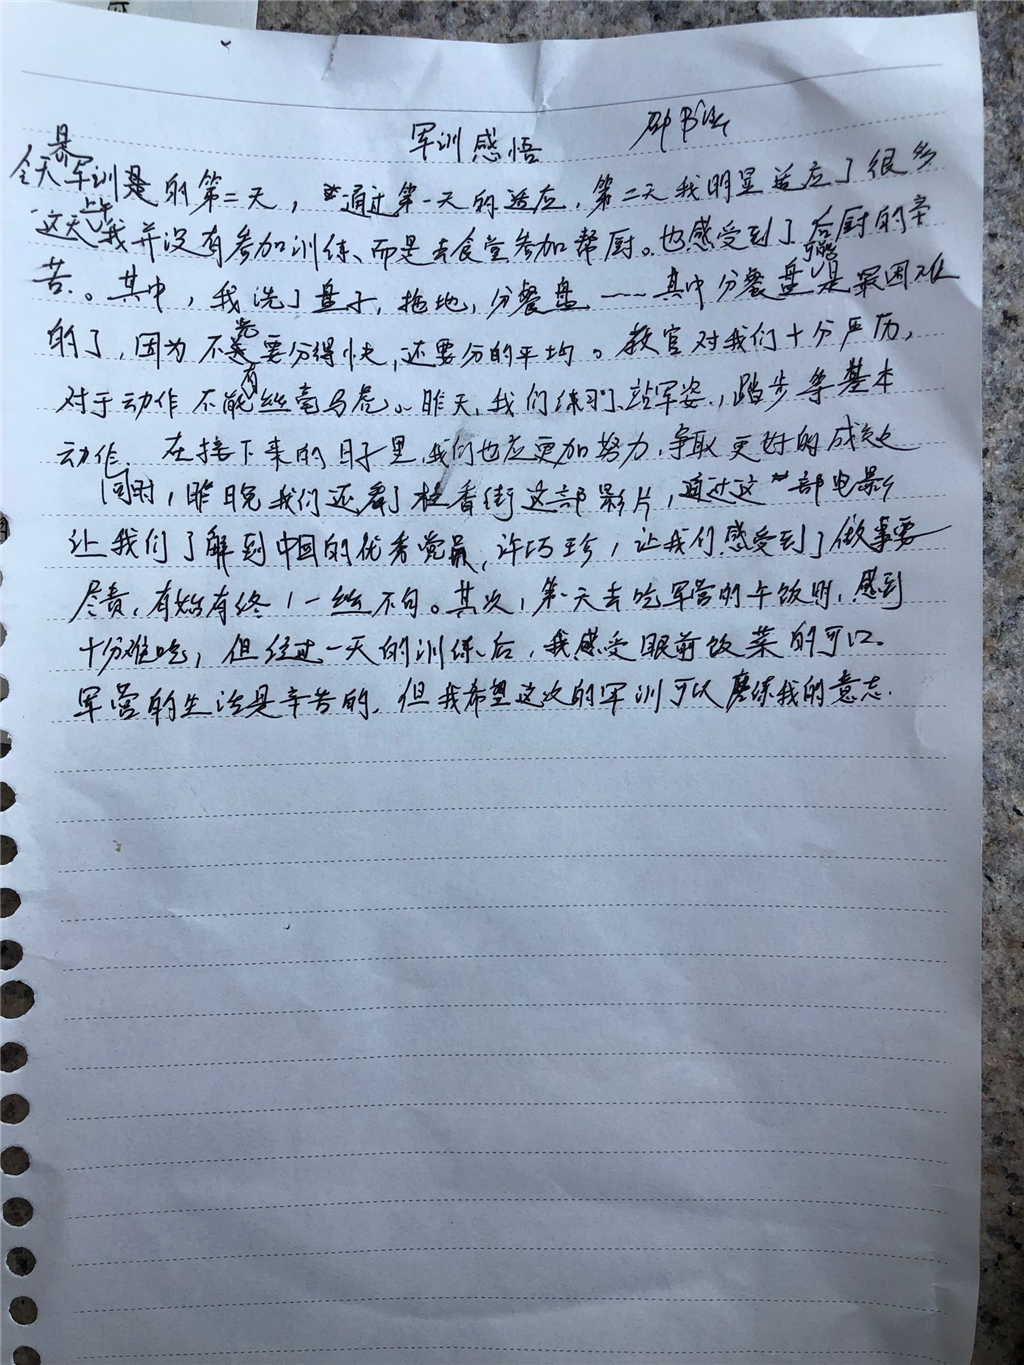 军训感悟
今天是军训的第二天，通过第一天的适应，第二天我明显适应了很多
这天上午我并没有参加训练、而是去食堂参加帮厨。也感受到了后厨的辛
苦。其中，我洗了盘子，拖地，分餐盘……其中分餐盘可能是最困难
的了，因为不光要分得快，还要分的平均。教官对我们十分严厉，
对于动作不能有丝毫马虎。昨天，我们练习了站军姿，踏步等基本
动作，在接下来的日子里，我们也应更加努力，争取更好的成绩
同时，昨晚我们还看了桂香街这部影片，通过这部电影
让我们了解到中国的优秀党员，许巧珍，让我们感受到了做事要
尽责，有始有终，一丝不苟。其次，第一天去吃军营的午饭时，感到
十分难吃，但经过一天的训练后，我感受眼前饭菜的可口。
军营的生活是辛苦的，但我希望这次的军训可以磨练我的意志.